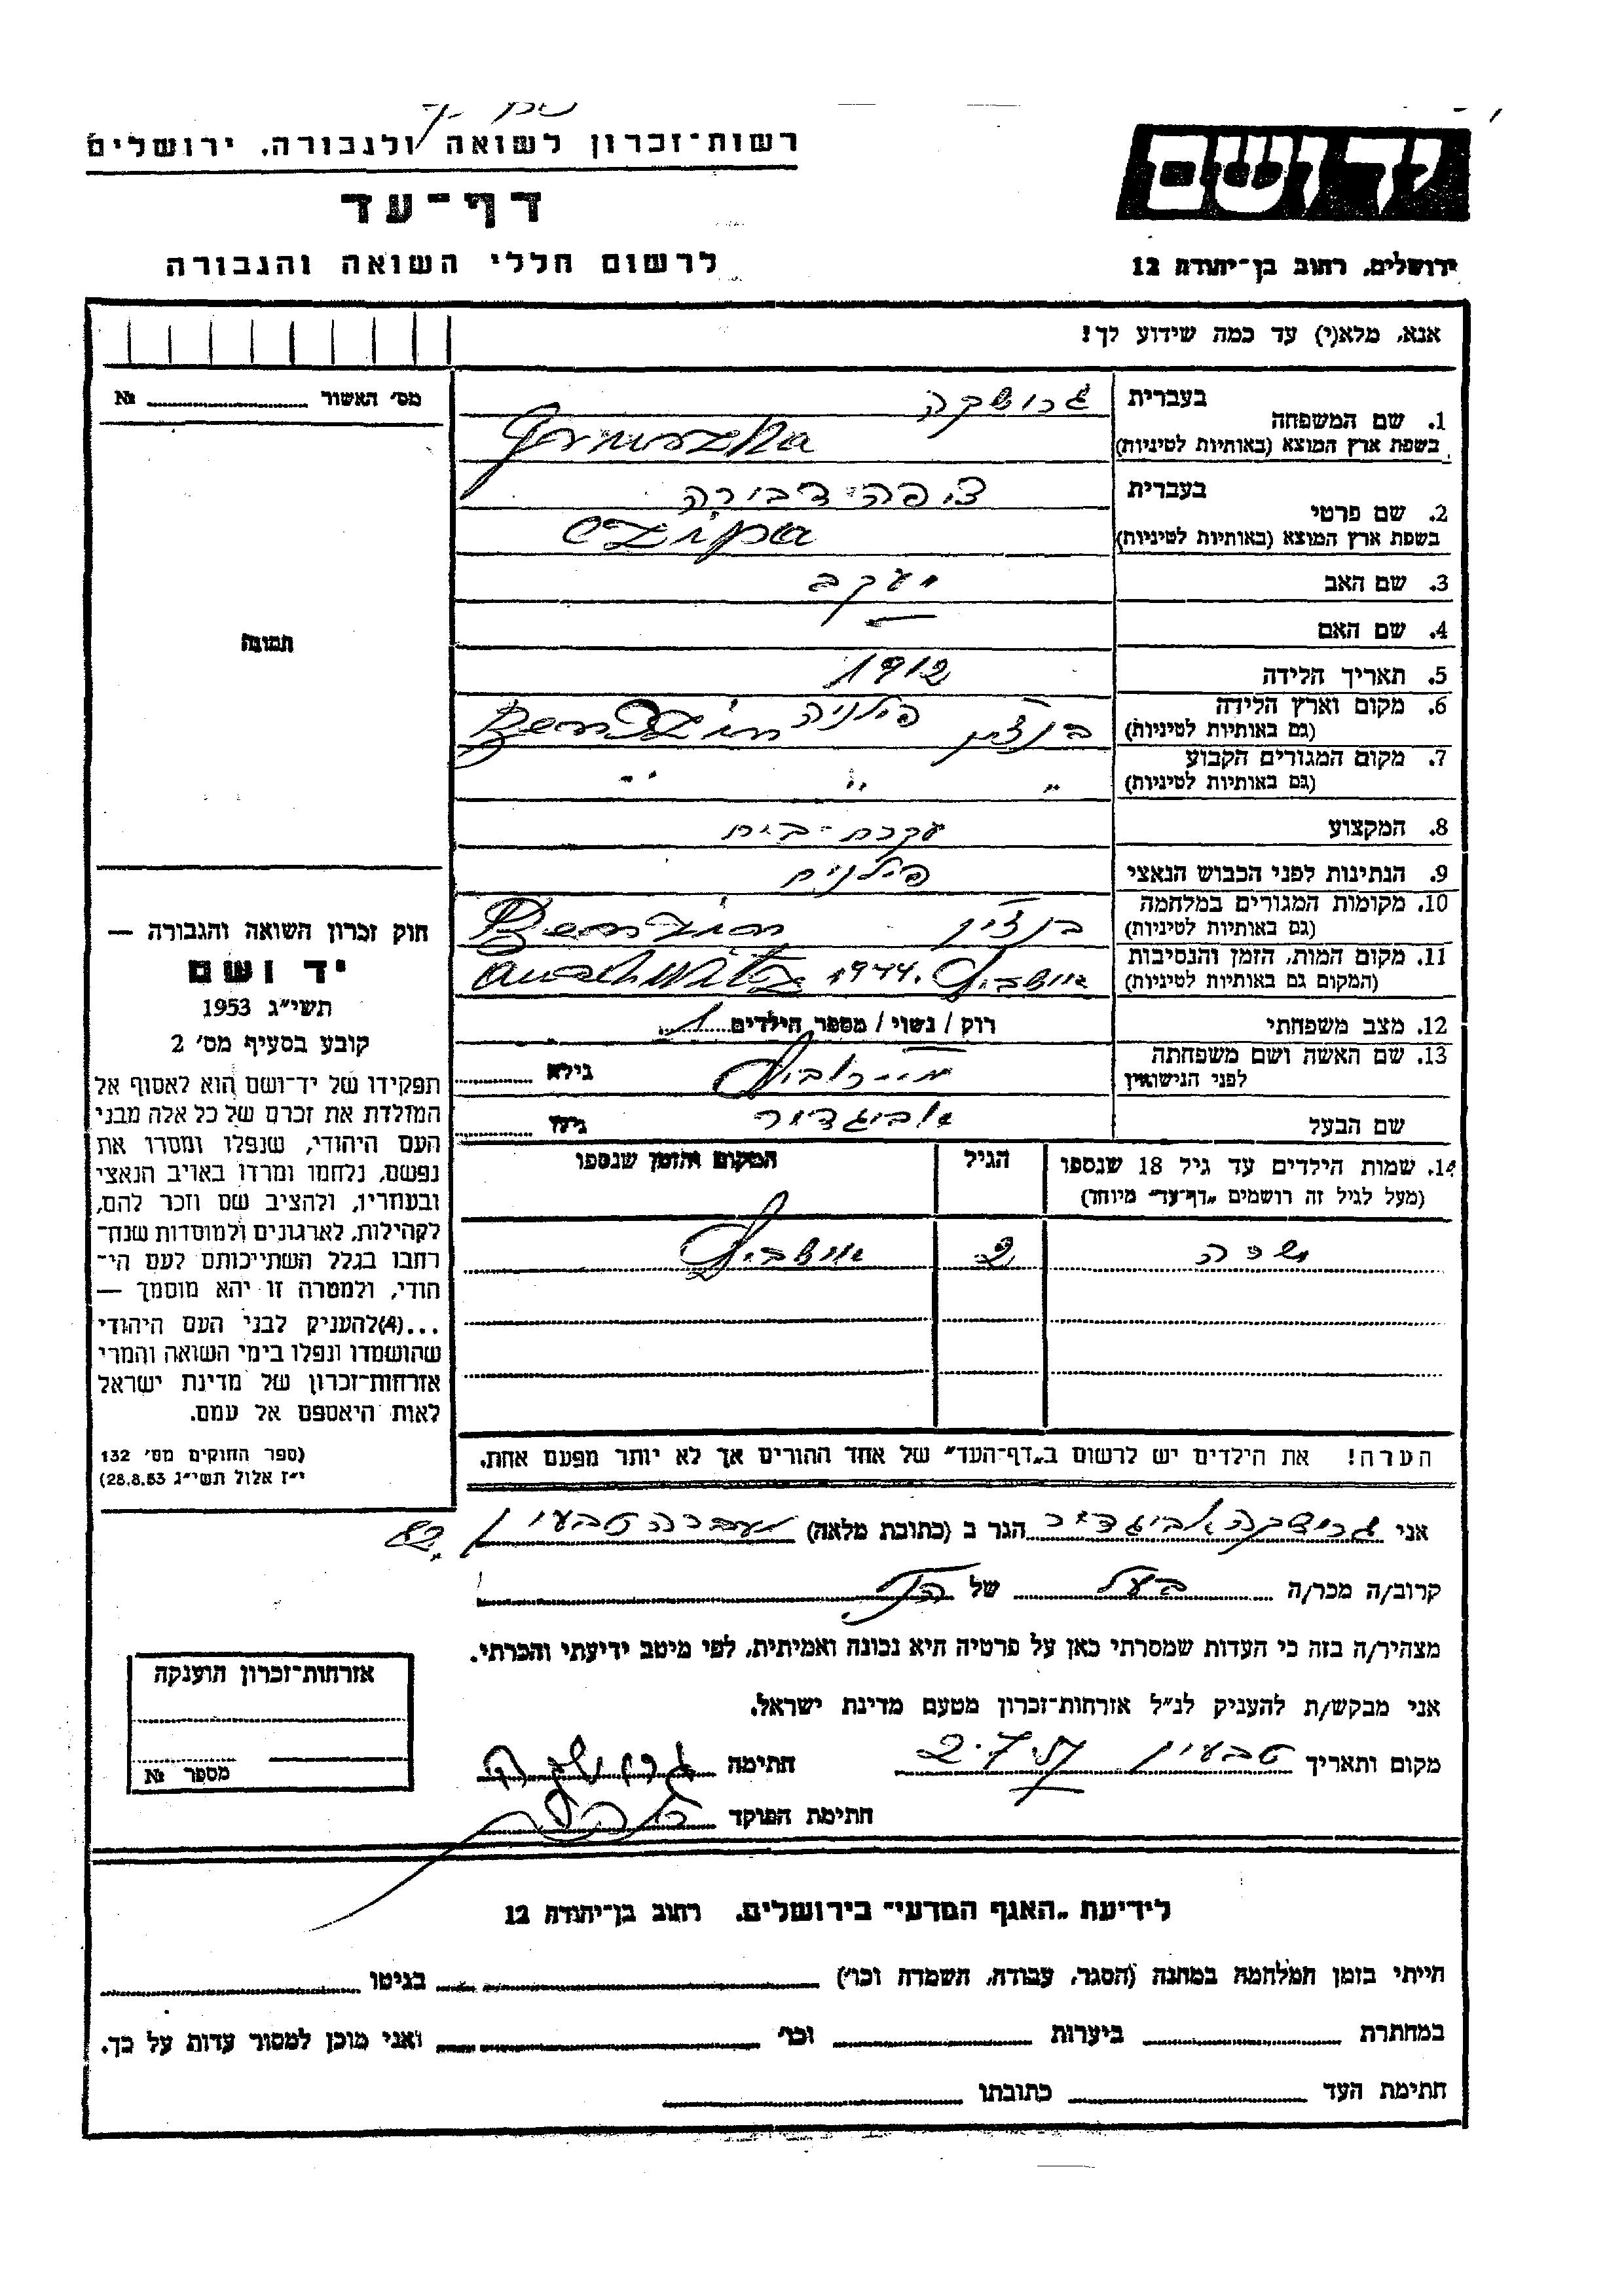 רשות־זכרון לשואה ולגבורה, ירושלים
יד ושם
דף־עד
לרשום חללי השואה והגבורה
ירושלים, רחוב בן־יהודה 12
אנא, מלא(י) עד כמה שידוע לך!
מס׳ האשור № 
1. שם המשפחה בעברית גרושקה
בשפת ארץ המוצא (באותיות לטיניות) Gruszka
2. שם פרטי בעברית ציפה־דבורה
בשפת ארץ המוצא (באותיות לטיניות) Czipa
3. שם האב יעקב
4. שם האם —
5. תאריך הלידה 1912
6. מקום וארץ הלידה (גם באותיות לטיניות) בנדזין פולניה Bendzin
7. מקום המגורים הקבוע (גם באותיות לטיניות) ״ ״ ״
8. המקצוע עקרת-בית
9. הנתינות לפני הכבוש הנאצי פולנית
10. מקומות המגורים במלחמה (גם באותיות לטיניות) בנדזין Bendzin
11. מקום המות, הזמן והנסיבות (המקום גם באותיות לטיניות) אושביץ 1944. Auschwitz
12. מצב משפחתי רוק / נשוי / מספר הילדים 1
13. שם האשה ושם משפחתה לפני הנישואין גילה
שם הבעל אביגדור גילו
14. שמות הילדים עד גיל 18 שנספו הגיל המקום והזמן שנספו
(מעל לגיל זה רושמים „דף־עד״ מיוחד)
2 אושביץ
הערה! את הילדים יש לרשום ב„דף־העד״ של אחד ההורים אך לא יותר מפעם אחת.
תמונה
חוק זכרון השואה והגבורה —
יד ושם
תשי״ג 1953
קובע בסעיף מס׳ 2
תפקידו של יד־ושם הוא לאסוף אל
המולדת את זכרם של כל אלה מבני
העם היהודי, שנפלו ומסרו את
נפשם, נלחמו ומרדו באויב הנאצי
ובעוזריו, ולהציב שם וזכר להם,
לקהילות, לארגונים ולמוסדות שנח־
רבו בגלל השתייכותם לעם הי־
הודי, ולמטרה זו יהא מוסמך —
...(4) להעניק לבני העם היהודי
שהושמדו ונפלו בימי השואה והמרי
אזרחות־זכרון של מדינת ישראל
לאות היאספם אל עמם.
(ספר החוקים מס׳ 132
י״ז אלול תשי״ג 28.8.53)
אני גרושקה אביגדור הגר ב (כתובת מלאה) מעברה טבעון 82
קרוב/ה מכר/ה בעל של
מצהיר/ה בזה כי העדות שמסרתי כאן על פרטיה היא נכונה ואמיתית, לפי מיטב ידיעתי והכרתי.
אני מבקש/ת להעניק לנ״ל אזרחות־זכרון מטעם מדינת ישראל.
מקום ותאריך טבעון 2.7.57 חתימה גרושקה
חתימת הפוקד
אזרחות־זכרון הוענקה
מספר №
לידיעת „האגף המדעי״ בירושלים, רחוב בן־יהודה 12
הייתי בזמן המלחמה במחנה (הסגר, עבודה, השמדה וכו׳) בגיטו
במחתרת ביערות וכו׳ ואני מוכן למסור עדות על כך.
חתימת העד כתובתו